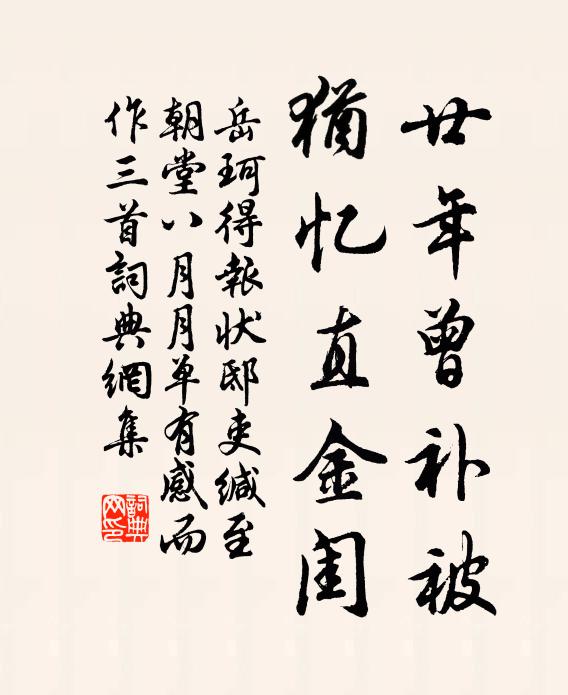 廿年曾补被
犹忆直金闺
岳珂得报状邸吏缄至
朝堂八月月单有感而
作三首詞典網集
詞典網印